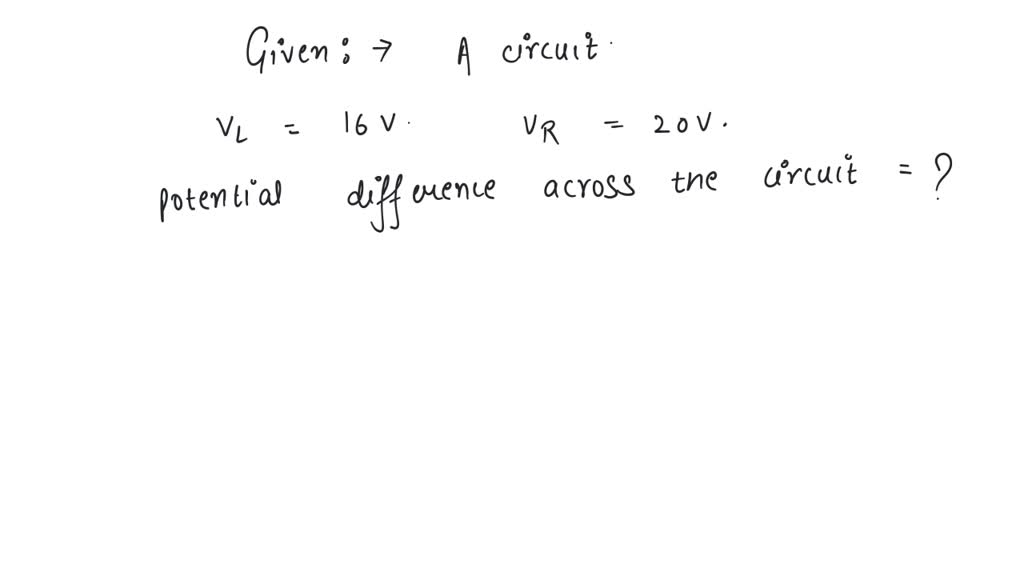 Given: → A circuit.
V_L = 16 V. V_R = 20 V.
potential difference across the circuit = ?